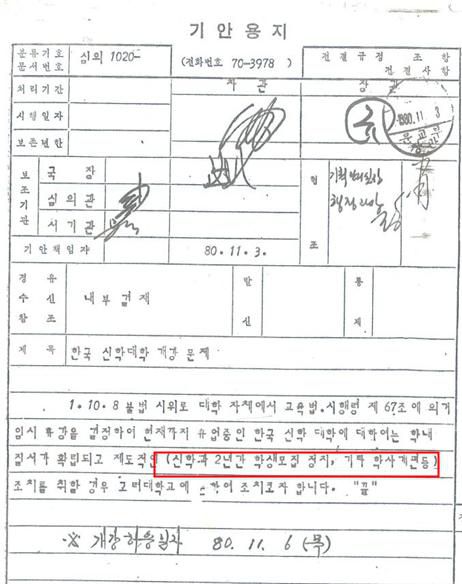 기 안 용 지
분류기호 문서번호 심의 1020- (전화번호 70-3978 ) 전결규정 조 항 전결사항
처리기간 차 관 장 관
시행일자 1980.11 3
보존년한
보조기관 국 장 협조 기획관리실장
심의관 행정과장
서기관
기안책임자 80.11.3.
경유 수신 참조 내부결재 발신 통제
제 목 한국 신학대학 개강 문제
1. 10.8 불법 시위로 대학 자체에서 교육법.시행령 제 67조에 의거
임시 휴강을 결정하여 현재까지 휴업중인 한국 신학 대학에 대하여는 학내
질서가 확립되고 제도적인 (신학과 2년간 학생모집 정지, 기타 학사개편등)
조치를 취할 경우 대학교에 하여 조치코자 합니다. "끝"
※ 개강허용일자 80. 11. 6 (목)